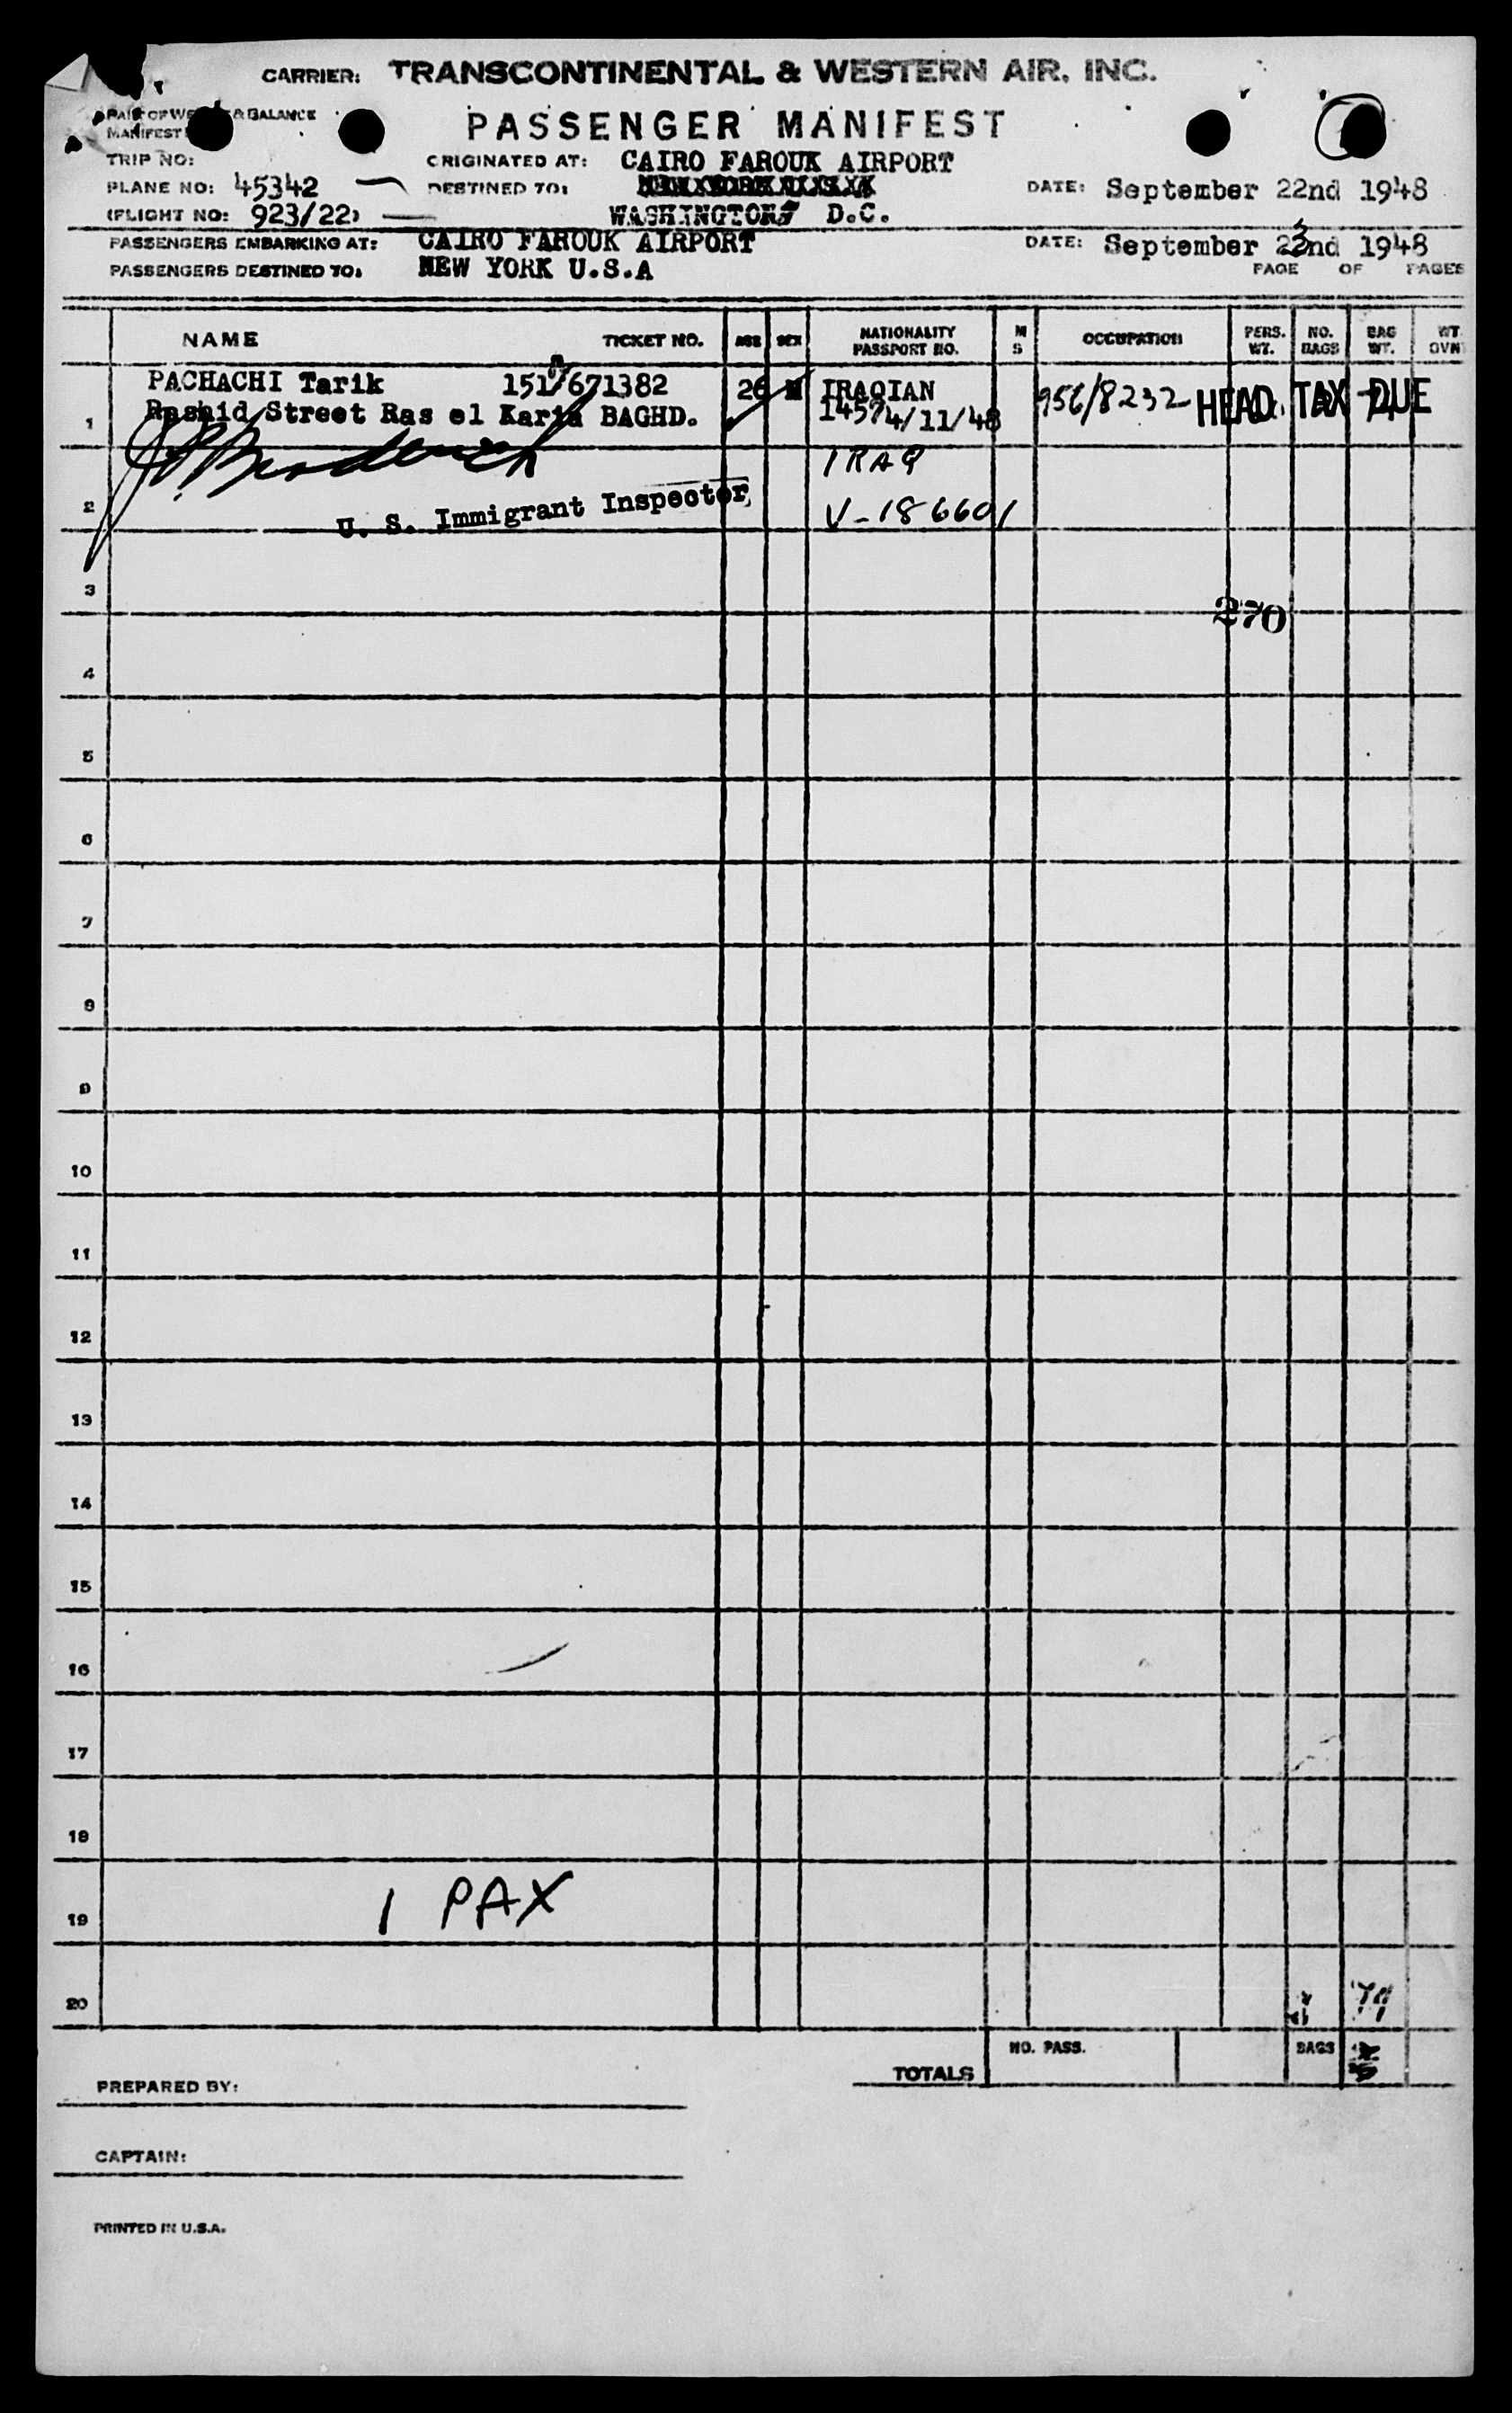 CARRIER: TRANSCONTINENTAL & WESTERN AIR, INC.
PART OF & BALANCE
MANIFEST
PASSENGER MANIFEST
TRIP NO:
ORIGINATED AT: CAIRO FAROUK AIRPORT
PLANE NO: 45342
DESTINED TO:
DATE: September 22nd 1948
(FLIGHT NO: 923/22)
WASHINGTON D.C.
PASSENGERS EMBARKING AT: CAIRO FAROUK AIRPORT
DATE: September 23nd 1948
PASSENGERS DESTINED TO: NEW YORK U.S.A
PAGE OF PAGES
NAME TICKET NO. AGE SEX NATIONALITY PASSPORT NO. M S OCCUPATION PERS. WT. NO. BAGS BAG WT. WT. OVN
PACHACHI Tarik 151/671382 26 M IRAQIAN 956/8232 HEAD TAX DUE
1 Rashid Street Ras el Karia BAGHD. 14574/11/48
IRAQ
2 U. S. Immigrant Inspector V-186601
3
270
4
5
6
7
8
9
10
11
12
13
14
15
16
17
18
19 1 PAX
20
TOTALS NO. PASS. BAGS
PREPARED BY:
CAPTAIN:
PRINTED IN U.S.A.